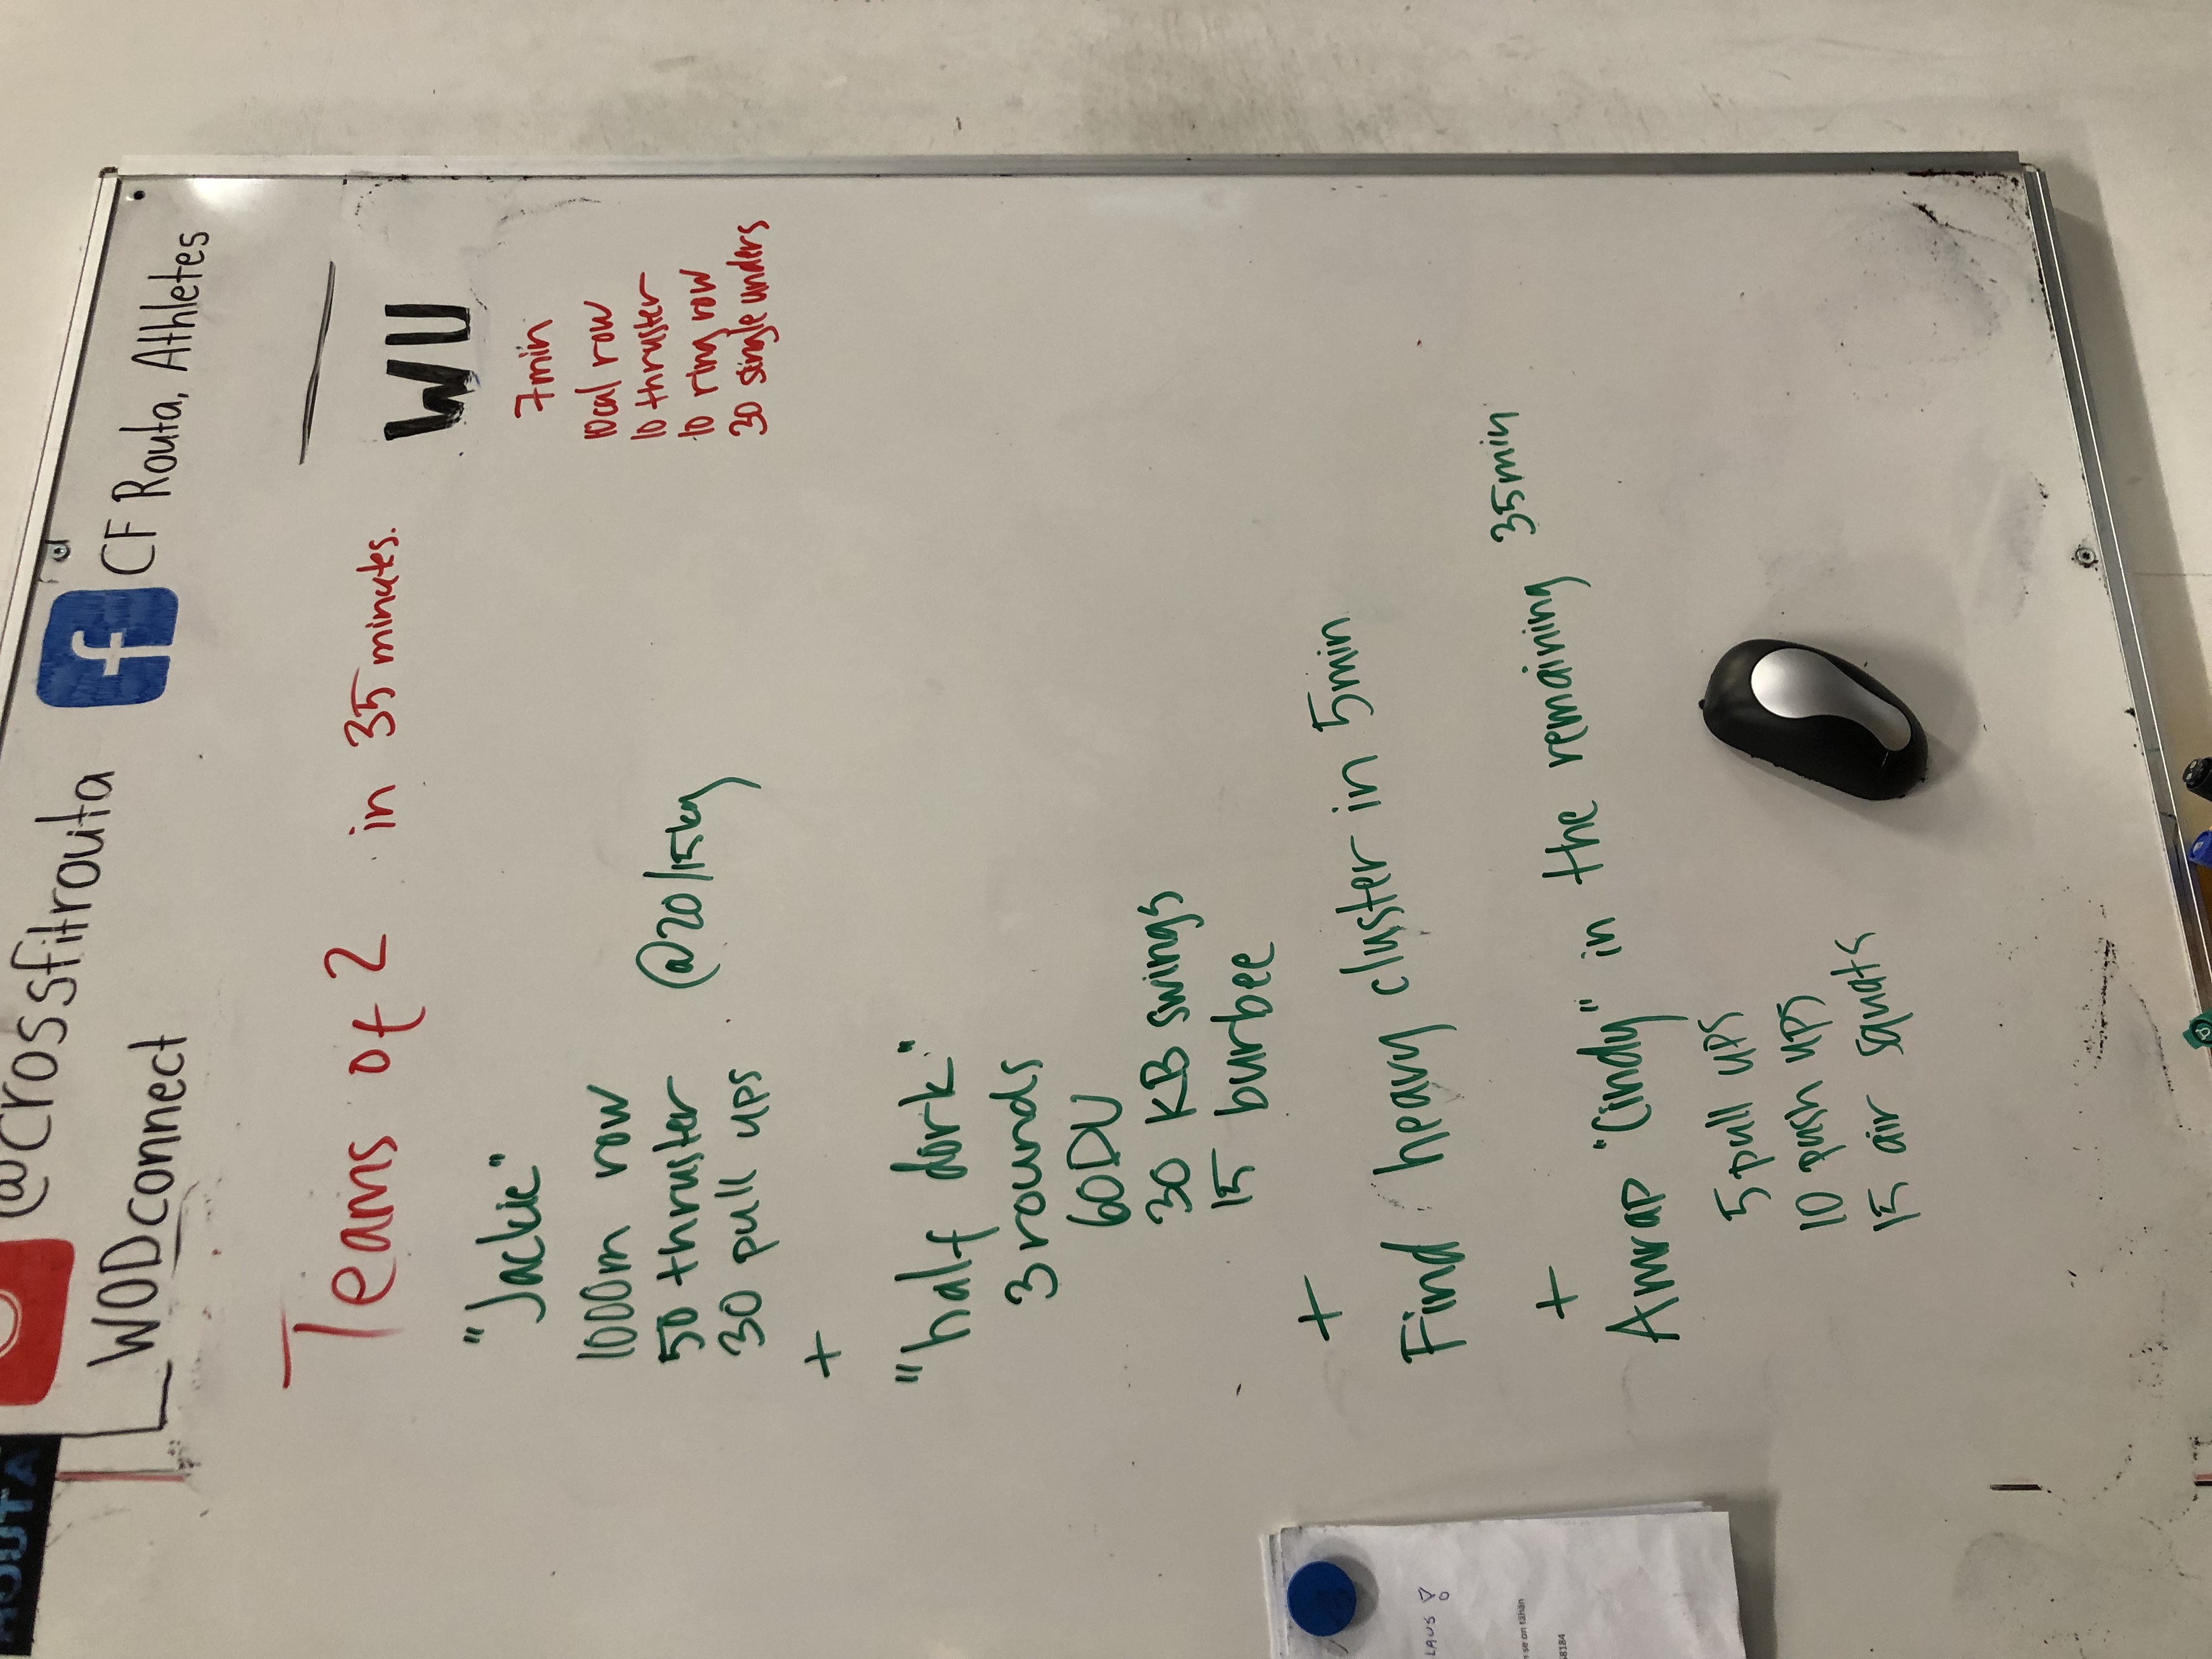 @crossfitrouta
f CF Routa, Athletes
WODconnect
Teams of 2 in 35 minutes.
"Jackie"
1000m row
50 thruster @20/15kg
30 pull ups
+
"half dork"
3 rounds
60DU
30 KB swings
15 burbee
+
Find heavy cluster in 5min
+
Amrap "Cindy" in the remaining 35min
5 pull ups
10 push ups
15 air squats
WU
7min
10cal row
10 thruster
10 ring row
30 single unders
se on tähän
58184